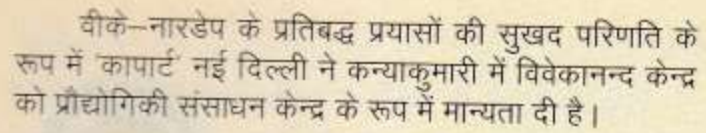 वीके–नारडेप के प्रतिबद्ध प्रयासों की सुखद परिणति के
रूप में 'कापार्ट' नई दिल्ली ने कन्याकुमारी में विवेकानन्द केन्द्र
को प्रौद्योगिकी संसाधन केन्द्र के रूप में मान्यता दी है।